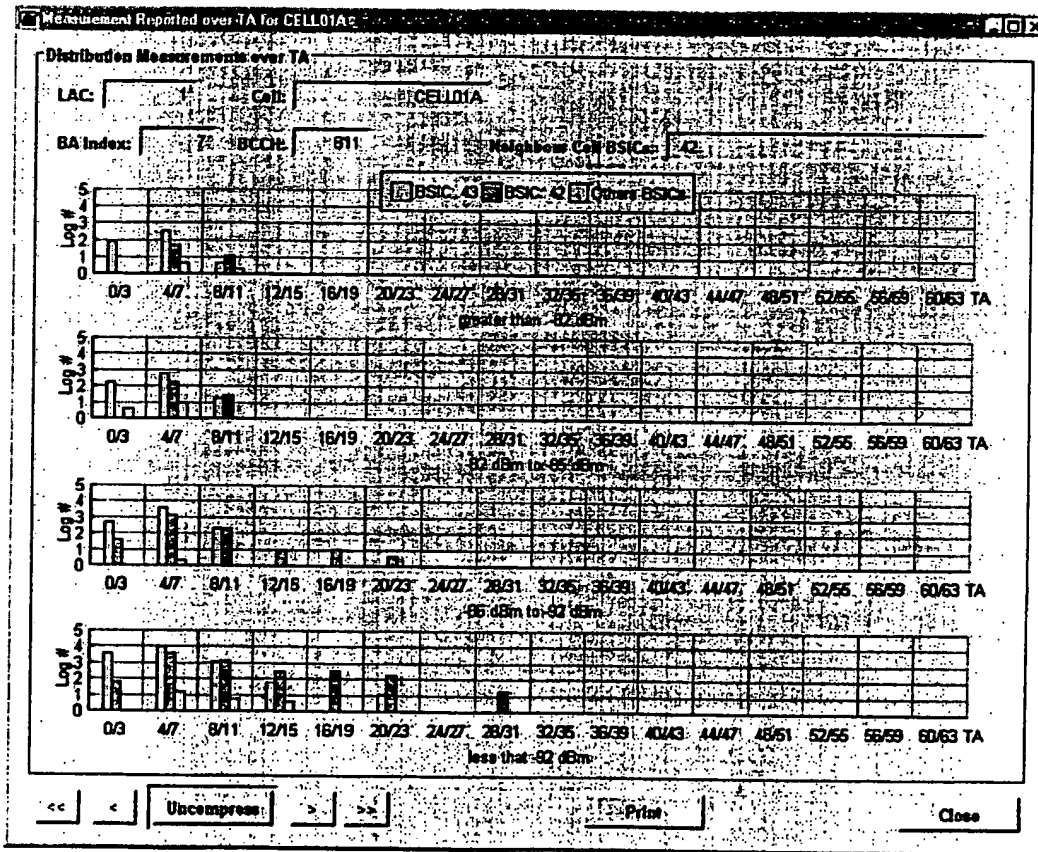 Measurement Reported over TA for CELL01A
Distribution Measurements over TA
LAC: 1 Cell: CELL01A
BA Index: 7 BCCH: 811 Neighbour Cell BSICs: 42
BSIC: 43 BSIC: 42 Others BSICs
5
4
3
2
1
0
Log #
0/3 4/7 8/11 12/15 16/19 20/23 24/27 28/31 32/35 36/39 40/43 44/47 48/51 52/55 56/59 60/63 TA
greater than -82 dBm
5
4
3
2
1
0
Log #
0/3 4/7 8/11 12/15 16/19 20/23 24/27 28/31 32/35 36/39 40/43 44/47 48/51 52/55 56/59 60/63 TA
-82 dBm to -85 dBm
5
4
3
2
1
0
Log #
0/3 4/7 8/11 12/15 16/19 20/23 24/27 28/31 32/35 36/39 40/43 44/47 48/51 52/55 56/59 60/63 TA
-85 dBm to -92 dBm
5
4
3
2
1
0
Log #
0/3 4/7 8/11 12/15 16/19 20/23 24/27 28/31 32/35 36/39 40/43 44/47 48/51 52/55 56/59 60/63 TA
less that -92 dBm
<< < Uncompress > >> Print Close